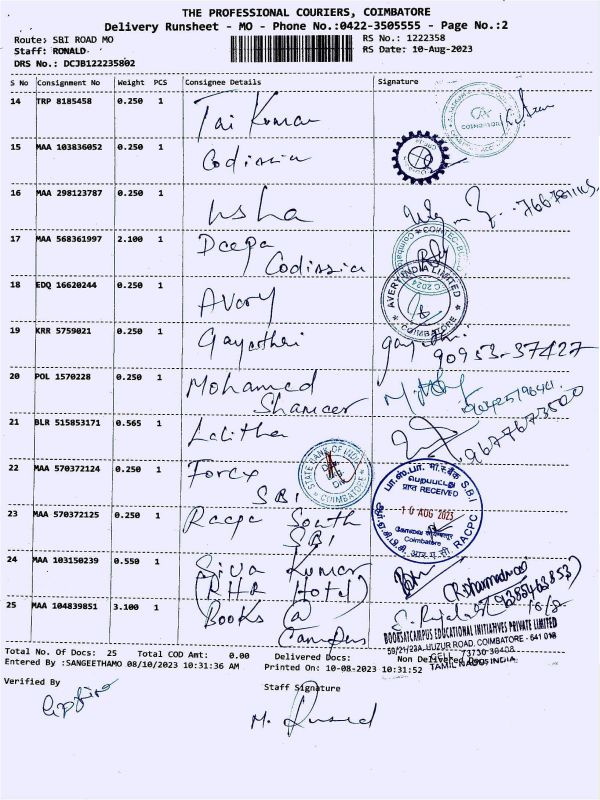 THE PROFESSIONAL COURIERS, COIMBATORE
Delivery Runsheet - MO - Phone No.:0422-3505555 - Page No.:2
Route: SBI ROAD MO
RS No.: 1222358
Staff: RONALD
RS Date: 10-Aug-2023
DRS No.: DCJB122235802
S No Consignment No Weight PCS Consignee Details Signature
14 TRP 8185458 0.250 1 Tai Kumar
15 MAA 103836052 0.250 1 Codissia
16 MAA 298123787 0.250 1 Usha
17 MAA 568361997 2.100 1 Deepa
Codissia
18 EDQ 16620244 0.250 1 Avery
AVERY INDIA LIMITED
* COIMBATORE *
19 KRR 5759021 0.250 1 Gayathri
90953-37427
20 POL 1570228 0.250 1 Mohamed
Shameer
21 BLR 515853171 0.565 1 Lalitha
9677673500
22 MAA 570372124 0.250 1 Forex
SBI
STATE BANK OF INDIA
COIMBATORE
23 MAA 570372125 0.250 1 Racpc South
SBI
प्राप्त RECEIVED
10 AUG 2023
Coimbatore
SBI RACPC
24 MAA 103150239 0.550 1 Siva Kumar
(RHR Hotel)
25 MAA 104839851 3.100 1 Books @
Campus
BOOKSATCAMPUS EDUCATIONAL INITIATIVES PRIVATE LIMITED
59/21/23A, HUZUR ROAD, COIMBATORE - 641 018
CELL: 73730 38408
TAMIL NADU, INDIA.
Total No. Of Docs: 25 Total COD Amt: 0.00 Delivered Docs: Non Delivered Docs:
Entered By :SANGEETHAMO 08/10/2023 10:31:36 AM Printed On: 10-08-2023 10:31:52
Verified By Staff Signature